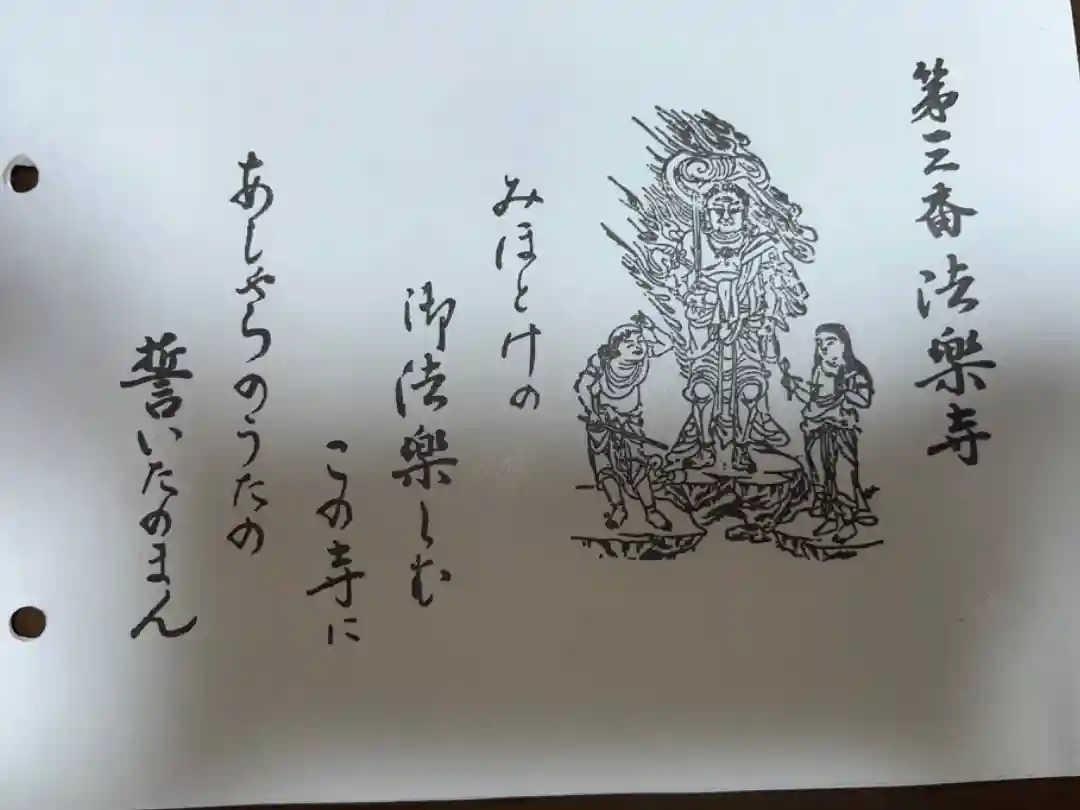 第三番 法樂寺
みほとけの
御法樂しむ
この寺に
あしゃらのうたの
誓いたのまん